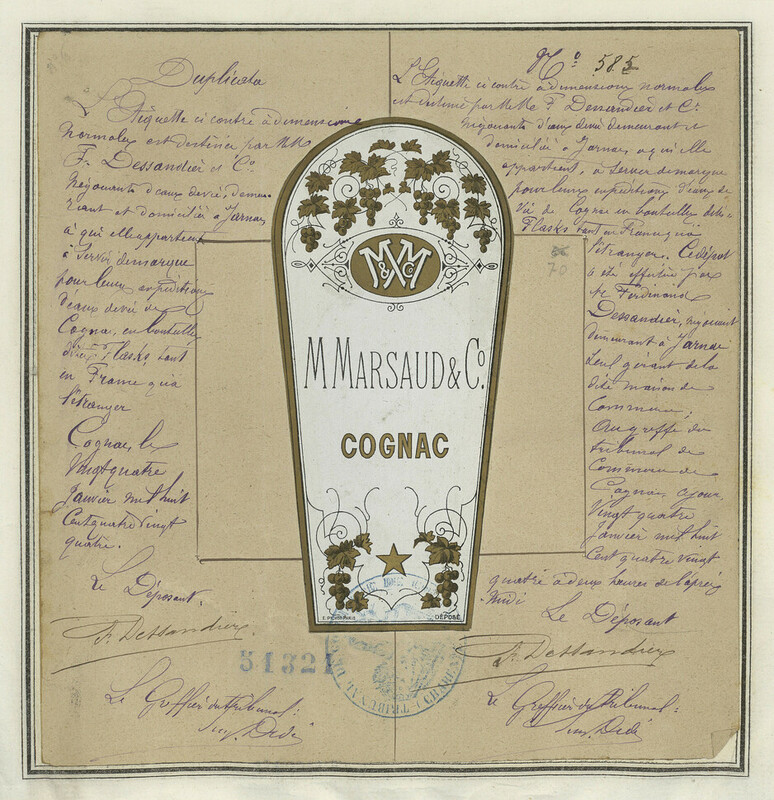 Duplicata
L'Etiquette ci contre à dimensions
normales est destinée par MM
Fd. Dessandier et Co.
Négociants d'eaux devie, demeu-
rant et domicilié à Jarnac,
à qui elle appartient,
à servir de marque
pour leurs expéditions
d'eaux devie de
Cognac, en bouteilles
dites Flasks, tant
en France qu'à
l'étranger
Cognac, le
Vingt quatre
Janvier mil huit
Cent quatre vingt
quatre.
Le Déposant.
F. Dessandier
51321
Le Greffier du Tribunal:
Didé
M&M
Co
M MARSAUD & Co.
COGNAC
DÉPOSÉ
No 585
L'Etiquette ci contre à dimensions normales
est destinée par MM. Fd. Dessandier et Co.
Négociants d'eaux devie demeurant et
domicilié à Jarnac, à qui elle
appartient, à servir de marque
pour leurs expéditions d'eaux de
Vie de Cognac en bouteilles dites
Flasks tant en France qu'à
l'étranger. Ce dépôt
70
a été effectué par
Mr Ferdinand
Dessandier, négociant
demeurant à Jarnac
seul gérant de la
dite maison de
Commerce,
au greffe du
tribunal de
Commerce de
Cognac, ce jour
Vingt quatre
Janvier mil huit
Cent quatre vingt
quatre à deux heures de l'après
Midi
Le Déposant
F. Dessandier
Le Greffier du Tribunal:
Didé